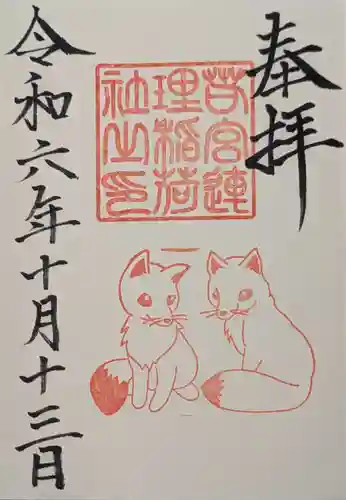 奉拝
苔宮連
理稲荷
社之印
令和六年十月十三日